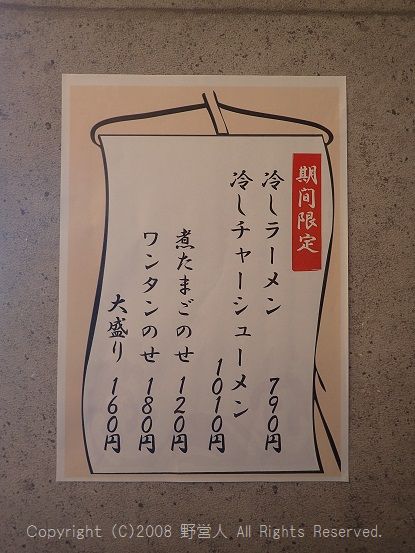 期間限定
冷しラーメン 790円
冷しチャーシューメン
1010円
煮たまごのせ 120円
ワンタンのせ 180円
大盛り 160円
Copyright (C)2008 野営人 All Rights Reserved.